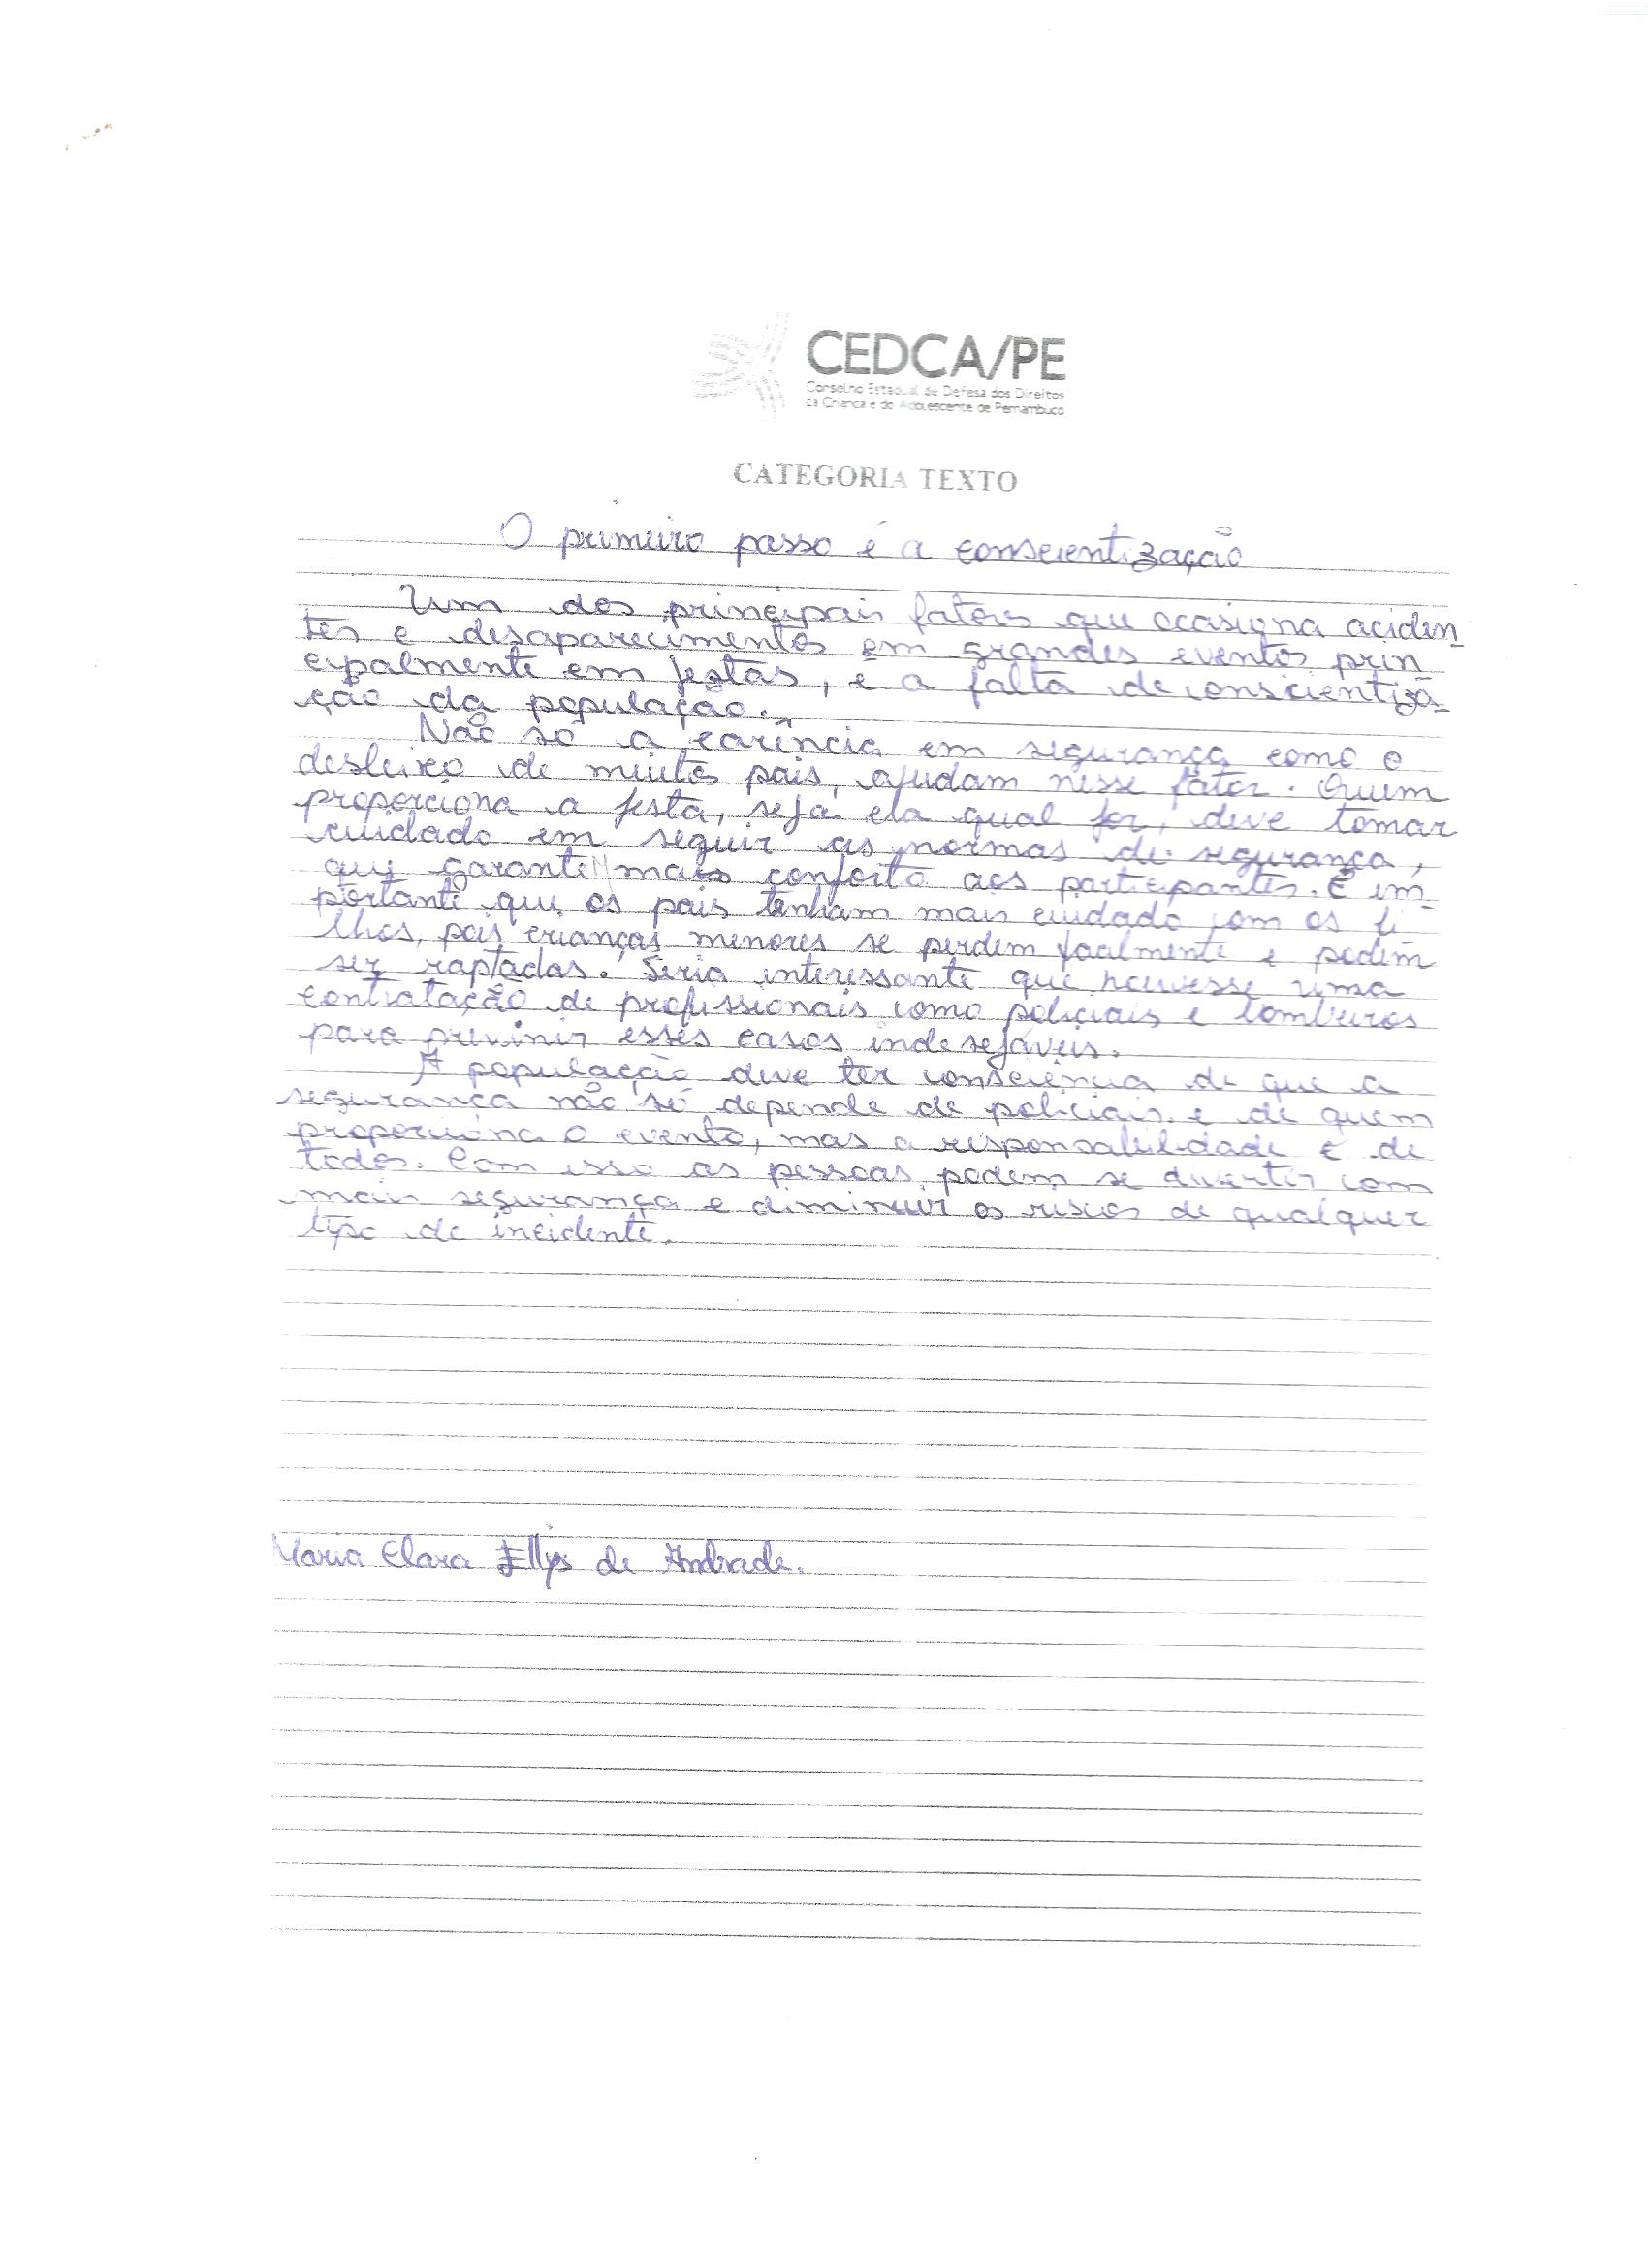 CEDCA/PE
Conselho Estadual de Defesa dos Direitos
da Criança e do Adolescente de Pernambuco
CATEGORIA TEXTO
O primeiro passo é a conscientização
Um dos principais fatores que ocasiona aciden-
tes e desaparecimentos em grandes eventos prin-
cipalmente em festas, é a falta de conscientiza-
ção da população.
Não só a carência em segurança como o
desleixo de muitos pais, ajudam nesse fator. Quem
proporciona a festa, seja ela qual for, deve tomar
cuidado em seguir as normas de segurança,
que garante mais conforto aos participantes. É im-
portante que os pais tenham mais cuidado com os fi
lhos, pois crianças menores se perdem facilmente e podem
ser raptadas. Seria interessante que houvesse uma
contratação de profissionais como policiais e bombeiros
para previnir esses casos indesejáveis.
A população deve ter consciência de que a
segurança não só depende de policiais e de quem
proporciona o evento, mas a responsabilidade é de
todos. Com isso as pessoas podem se divertir com
mais segurança e diminuir os riscos de qualquer
tipo de incidente.
Maria Clara Ellys de Andrade.